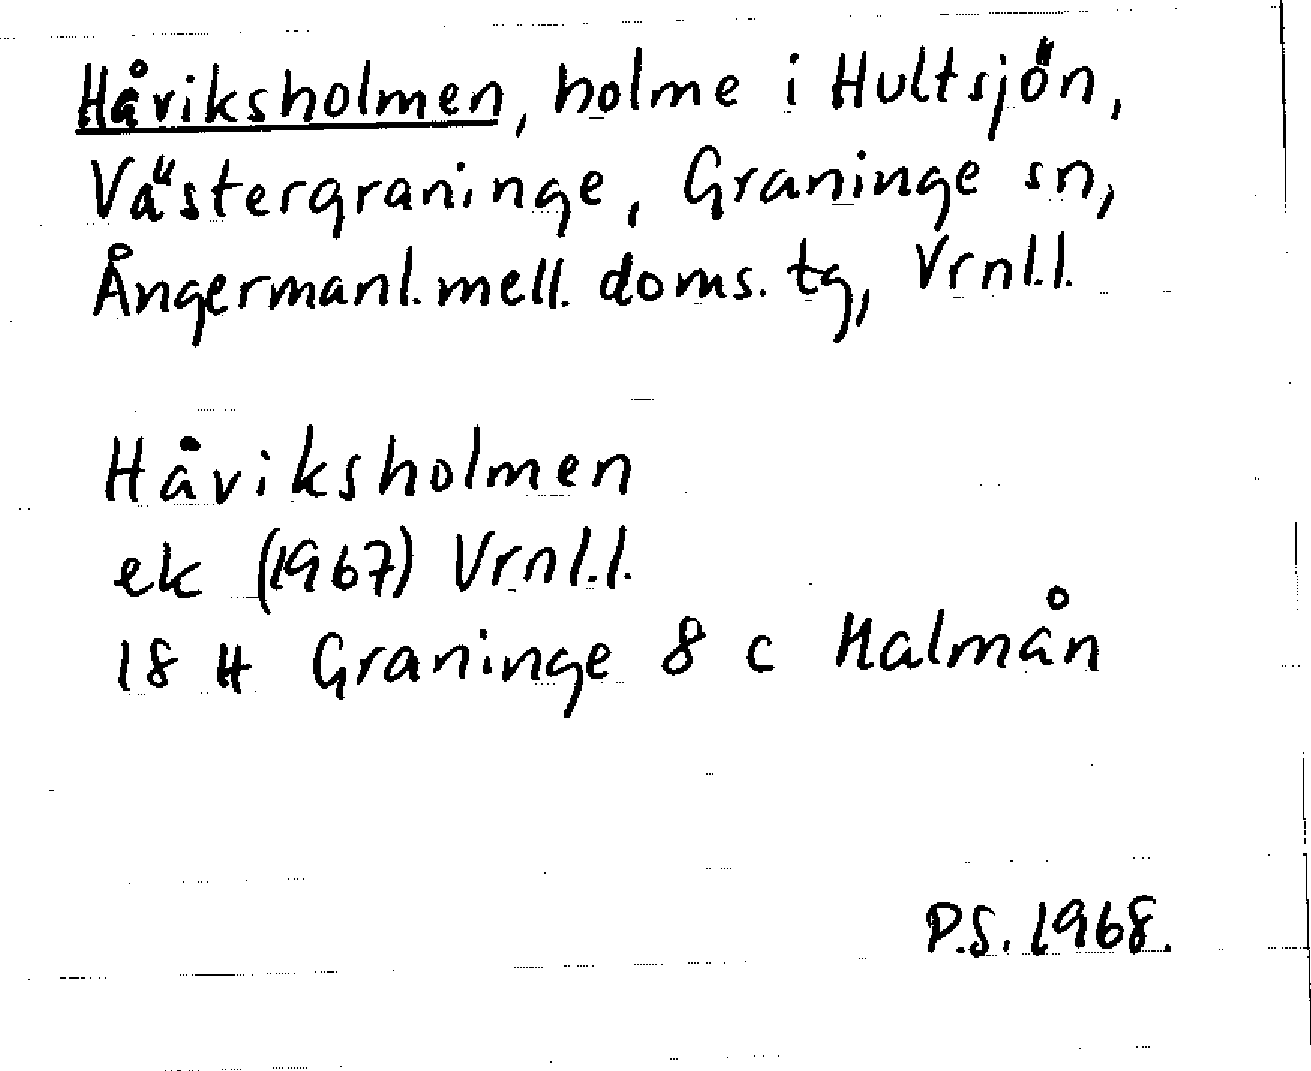 Håviksholmen, holme i Hultsjön,
Västergraninge, Graninge sn,
Ångermanl. mell. doms. tg, Vrnl.l.
Håviksholmen
ek (1967) Vrnl.l.
18 H Graninge 8 c Halmån
P.S. 1968.